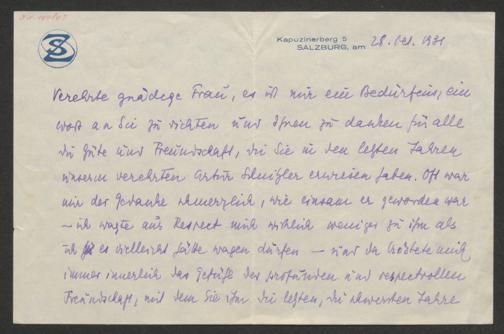 SZ
Kapuzinerberg 5
SALZBURG, am 28. Oct. 1931
Verehrte gnädige Frau, es ist mir ein Bedürfnis, ein
wort an Sie zu richten und Ihnen zu danken für alle
die Güte und Freundschaft, die Sie in den letzten Jahren
unserm verehrten Artur Schnitzler erwiesen haben. Oft war
mir der Gedanke schmerzlich, wie einsam er geworden war
– ich wagte aus Respect mich wirklich weniger zu ihm als
ich es vielleicht hätte wagen dürfen – und da tröstete mich
immer innerlich das Gefühl der profunden und respectvollen
Freundschaft, mit dem Sie ihm die letzten, die schwersten Jahre